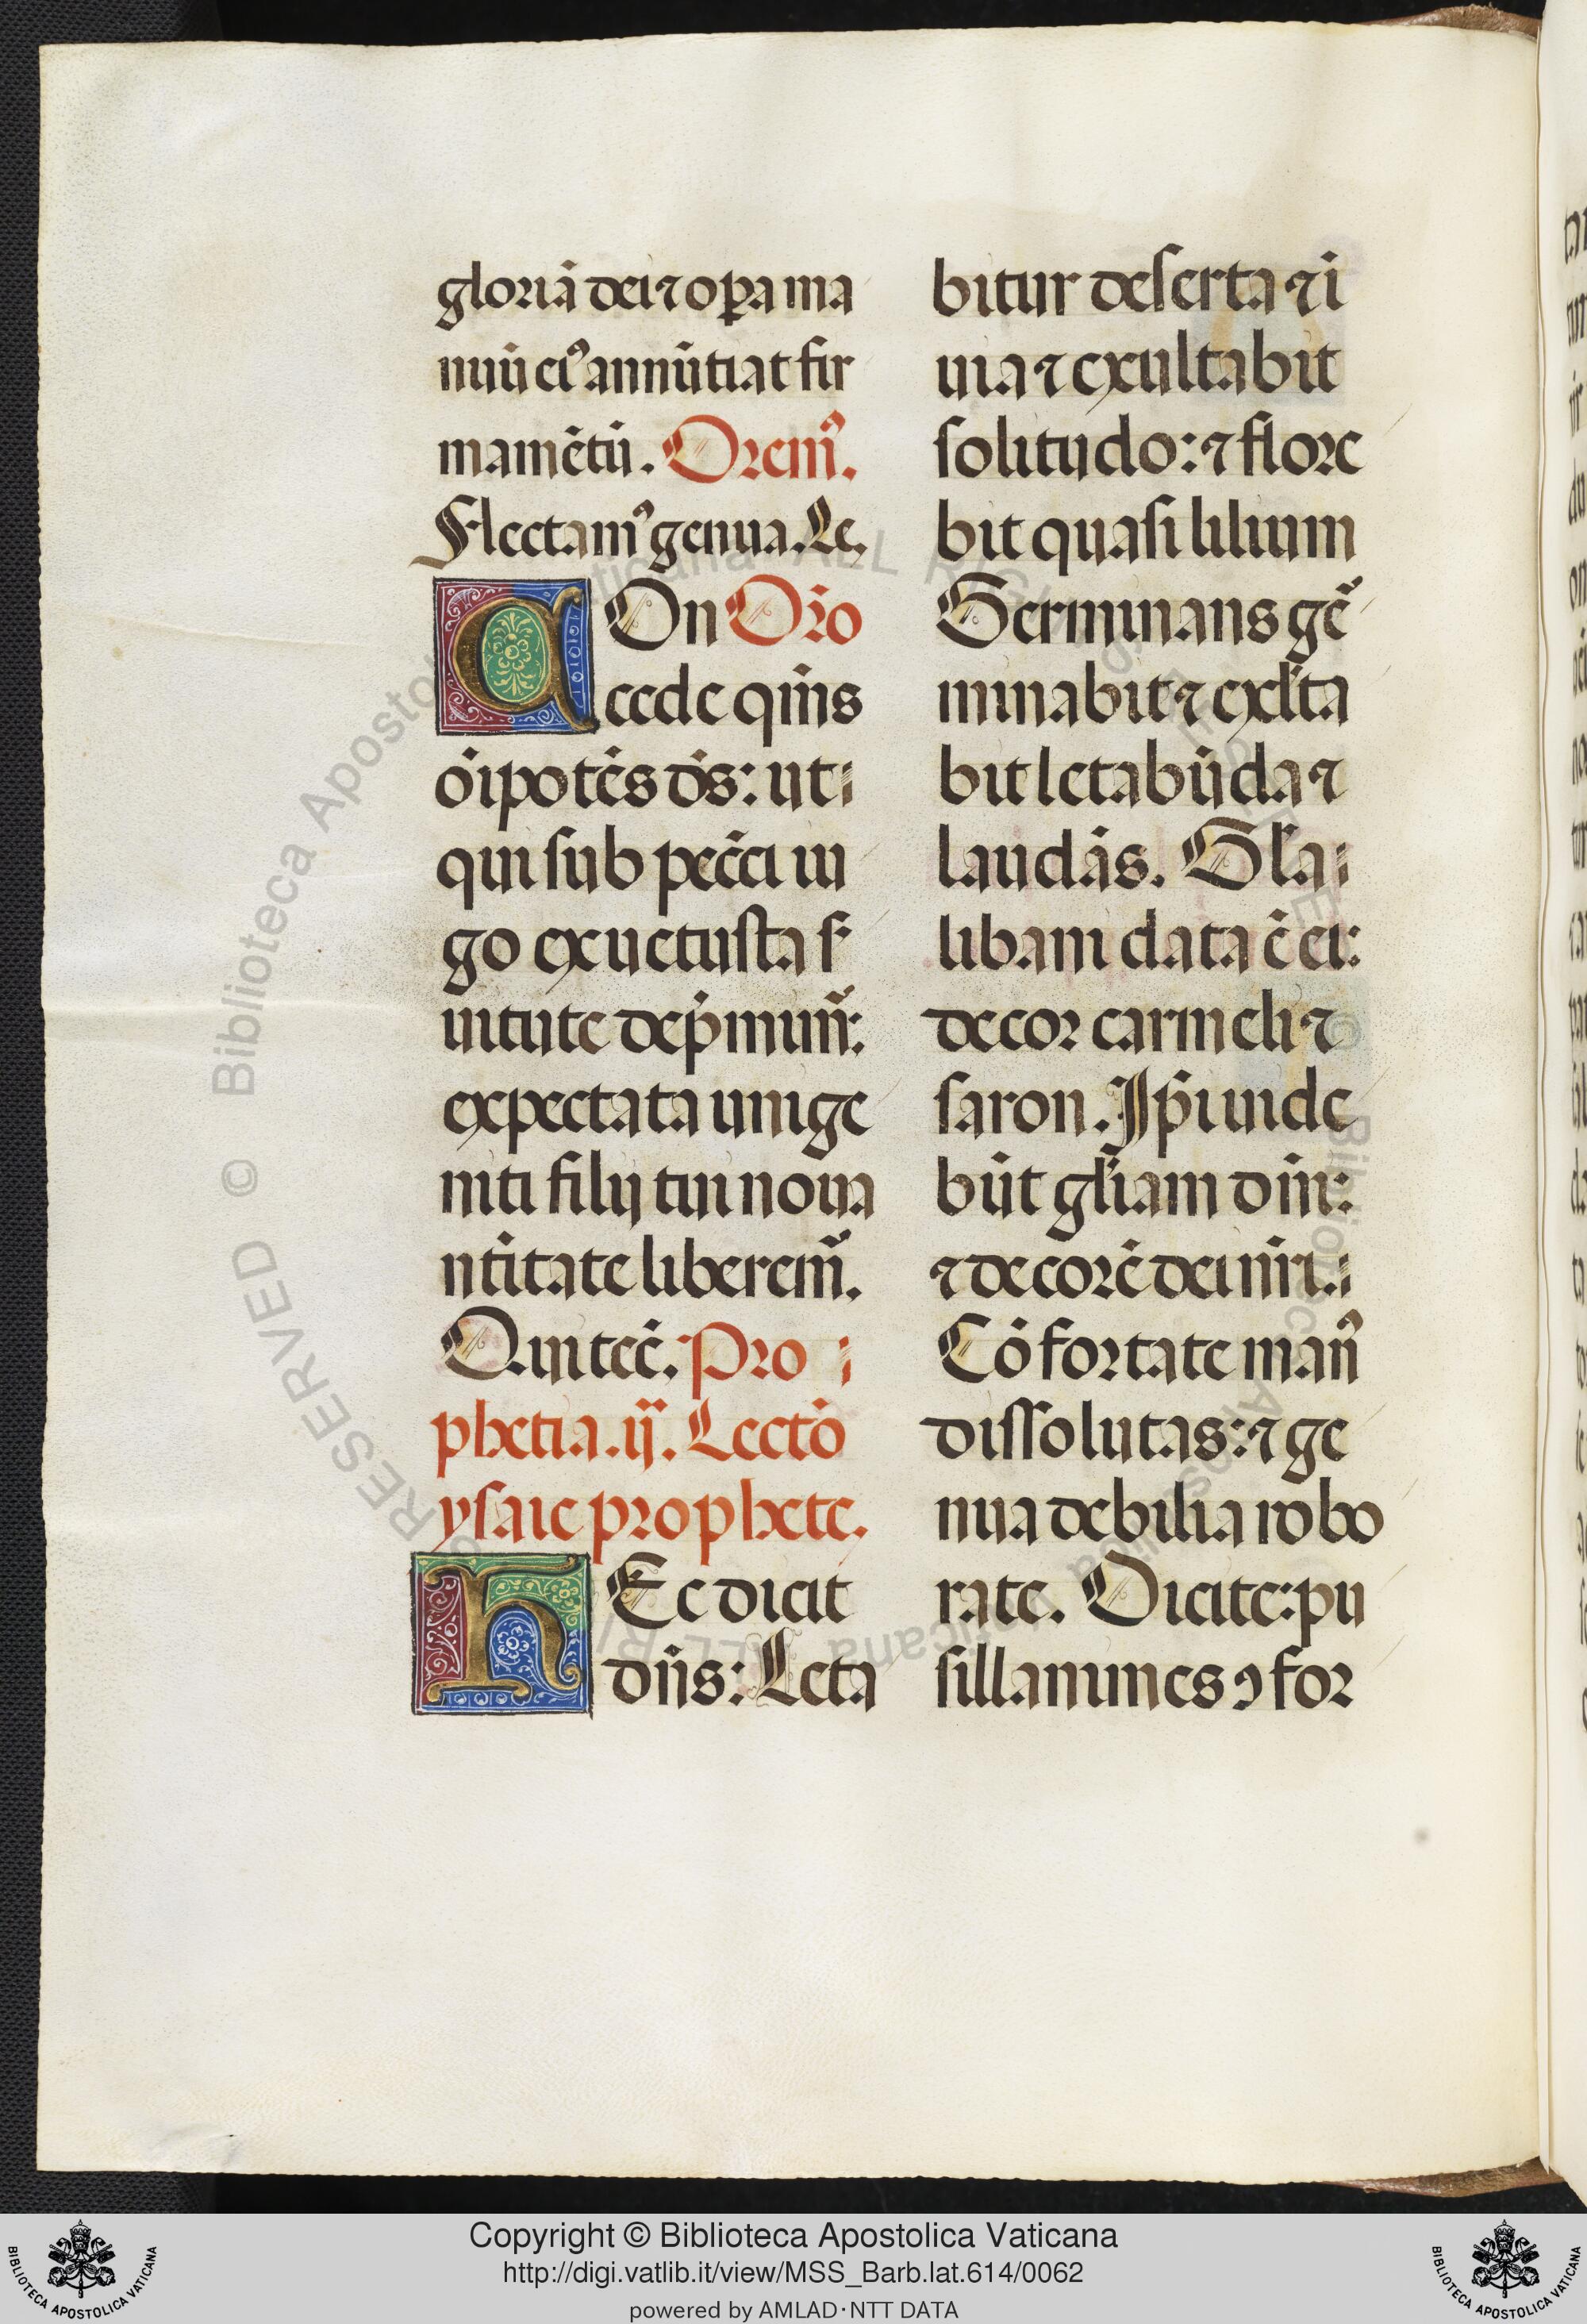 gloriā dei ⁊ oꝑa ma
nuū eiꝰ annūtiat fir
mamētū. Oremꝰ.
Flectamꝰ genua. Le.
COn Orō
cede q̄m̄s
ōipotēs d̄s: ut
qui sub pecc̄i iu
go ex uetusta s̄
uitute dep̄mim̄:
expectata unige
niti filij tui noua
nt̄itate liberem̄.
Qui tec̄. Pro
phetia .ij. Lectō
ysaie prophete.
HEc dicit
dn̄s: Leta
bitur deserta ⁊ ī
uia ⁊ exultabit
solitudo: ⁊ flore
bit quasi lilium
Germinans gē
minabit ⁊ exl̄ta
bit letabūda ⁊
laudās. Gl̄a
libani data ē ei:
decor carmeli ⁊
saron. Ip̄i uide
būt gl̄iam dn̄i:
⁊ decorē dei nr̄i.
Cōfortate manꝰ
dissolutas: ⁊ ge
nua debilia robo
rate. Dicite: pu
sillanimes ꝯfor
Copyright © Biblioteca Apostolica Vaticana
http://digi.vatlib.it/view/MSS_Barb.lat.614/0062
powered by AMLAD·NTT DATA
BIBLIOTECA APOSTOLICA VATICANA
BIBLIOTECA APOSTOLICA VATICANA